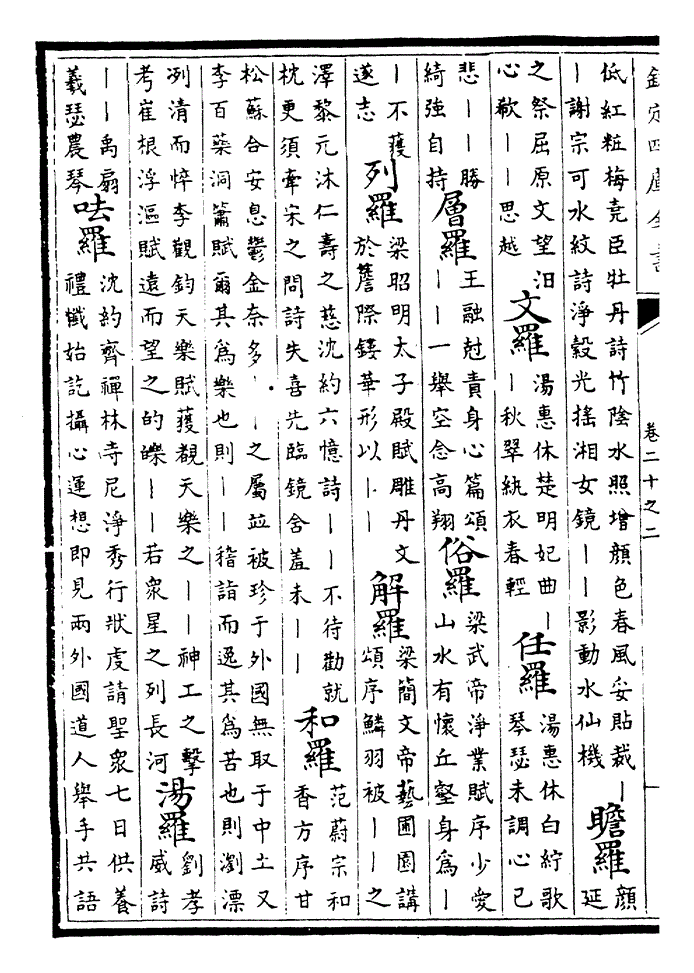 欽定四庫全書
卷二十之二
低紅粧梅堯臣牡丹詩竹陰水照增顏色春風妥貼裁丨
丨謝宗可水紋詩淨縠光搖湘女鏡丨丨影動水仙機
瞻羅
顏
延
之祭屈原文望汨
心欷丨丨思越
文羅
湯惠休楚明妃曲丨
丨秋翠紈衣春輕
任羅
湯惠休白紵歌
琴瑟未調心已
悲丨丨勝
綺強自持
層羅
王融尅責身心篇頌
丨丨一舉空念高翔
俗羅
梁武帝淨業賦序少愛
山水有懷丘壑身爲丨
丨不獲
遂志
列羅
梁昭明太子殿賦雕丹文
於簷際鏤華形以丨丨
解羅
梁簡文帝藝圃園講
頌序鱗羽被丨丨之
澤黎元沐仁壽之慈沈約六憶詩丨丨不待勸就
枕更須牽宋之問詩失喜先臨鏡含羞未丨丨
和羅
范蔚宗和
香方序甘
松蘇合安息鬱金奈多丨丨之屬並被珍于外國無取于中土又
李百藥洞簫賦爾其爲樂也則丨丨稽詣而逸其爲苦也則瀏漂
冽清而悴李觀鈞天樂賦獲覩天樂之丨丨神工之擊
考崔根浮漚賦遠而望之的皪丨丨若衆星之列長河
湯羅
劉孝
威詩
丨丨禹扇
羲瑟農琴
呿羅
沈約齊禪林寺尼淨秀行狀虔請聖衆七日供養
禮懺始訖攝心運想即見兩外國道人舉手共語